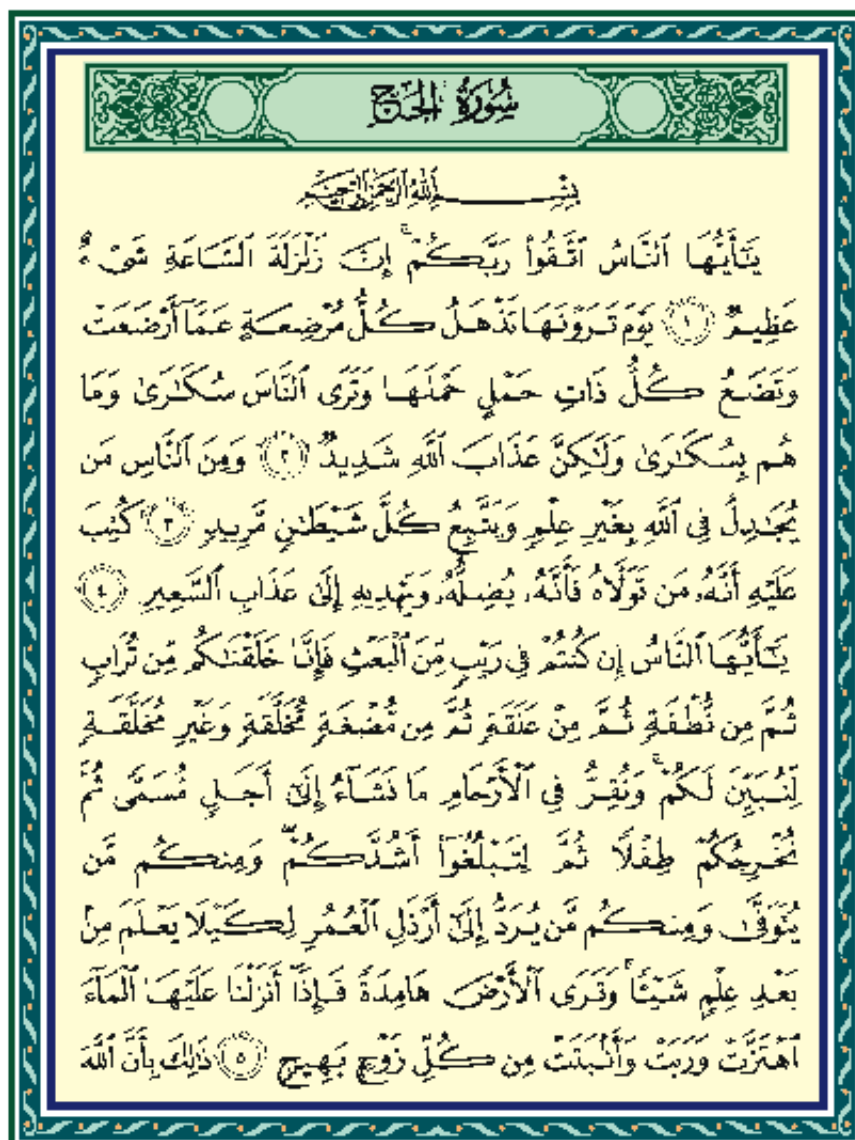 سُورَةُ الحَجّ
بِسْمِ ٱللَّهِ ٱلرَّحْمَٰنِ ٱلرَّحِيمِ
يَٰٓأَيُّهَا ٱلنَّاسُ ٱتَّقُوا۟ رَبَّكُمْ ۚ إِنَّ زَلْزَلَةَ ٱلسَّاعَةِ شَىْءٌ
عَظِيمٌ ١ يَوْمَ تَرَوْنَهَا تَذْهَلُ كُلُّ مُرْضِعَةٍ عَمَّآ أَرْضَعَتْ
وَتَضَعُ كُلُّ ذَاتِ حَمْلٍ حَمْلَهَا وَتَرَى ٱلنَّاسَ سُكَٰرَىٰ وَمَا
هُم بِسُكَٰرَىٰ وَلَٰكِنَّ عَذَابَ ٱللَّهِ شَدِيدٌ ٢ وَمِنَ ٱلنَّاسِ مَن
يُجَٰدِلُ فِى ٱللَّهِ بِغَيْرِ عِلْمٍ وَيَتَّبِعُ كُلَّ شَيْطَٰنٍ مَّرِيدٍ ٣ كُتِبَ
عَلَيْهِ أَنَّهُۥ مَن تَوَلَّاهُ فَأَنَّهُۥ يُضِلُّهُۥ وَيَهْدِيهِ إِلَىٰ عَذَابِ ٱلسَّعِيرِ ٤
يَٰٓأَيُّهَا ٱلنَّاسُ إِن كُنتُمْ فِى رَيْبٍ مِّنَ ٱلْبَعْثِ فَإِنَّا خَلَقْنَٰكُم مِّن تُرَابٍ
ثُمَّ مِن نُّطْفَةٍ ثُمَّ مِنْ عَلَقَةٍ ثُمَّ مِن مُّضْغَةٍ مُّخَلَّقَةٍ وَغَيْرِ مُخَلَّقَةٍ
لِّنُبَيِّنَ لَكُمْ ۚ وَنُقِرُّ فِى ٱلْأَرْحَامِ مَا نَشَآءُ إِلَىٰٓ أَجَلٍ مُّسَمًّى ثُمَّ
نُخْرِجُكُمْ طِفْلًا ثُمَّ لِتَبْلُغُوٓا۟ أَشُدَّكُمْ ۖ وَمِنكُم مَّن
يُتَوَفَّىٰ وَمِنكُم مَّن يُرَدُّ إِلَىٰٓ أَرْذَلِ ٱلْعُمُرِ لِكَيْلَا يَعْلَمَ مِنۢ
بَعْدِ عِلْمٍ شَيْـًٔا ۚ وَتَرَى ٱلْأَرْضَ هَامِدَةً فَإِذَآ أَنزَلْنَا عَلَيْهَا ٱلْمَآءَ
ٱهْتَزَّتْ وَرَبَتْ وَأَنۢبَتَتْ مِن كُلِّ زَوْجٍۭ بَهِيجٍ ٥ ذَٰلِكَ بِأَنَّ ٱللَّهَ